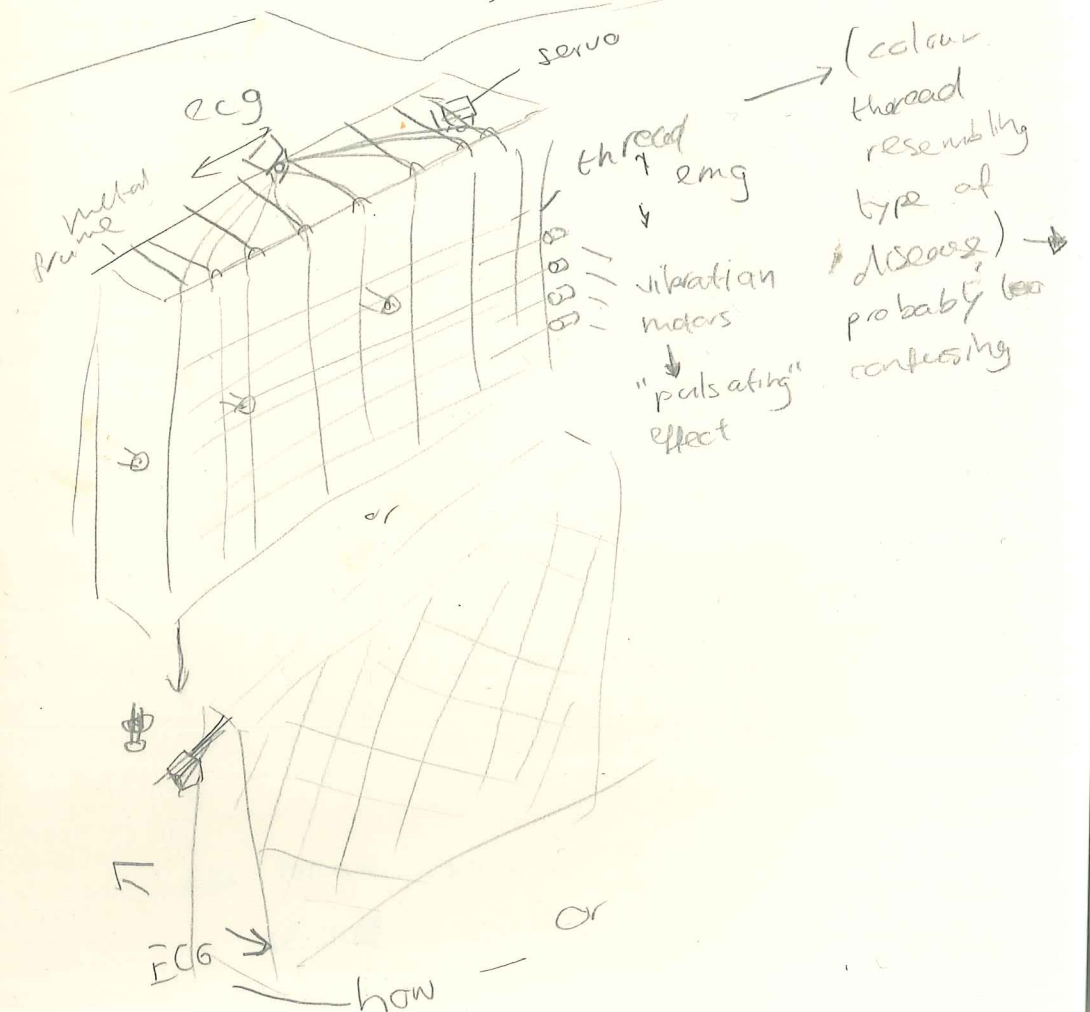 servo
ecg
metal
frame
thread
emg
vibration
motors
"pulsating"
effect
(colour
theread
resembling
type of
disease)
probably too
confusing
or
ECG
or
how